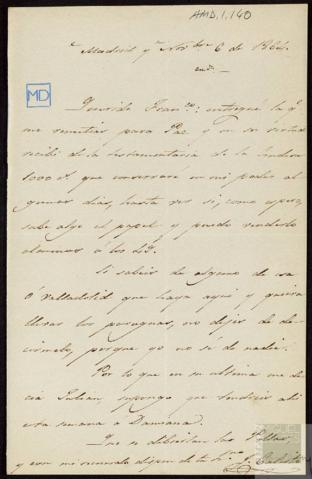 AMD, 1, 140
Madrid y Nov.bre 6 de 1864.
MD
Querido Fran.co: entregué la q.e
me remitias para Paz y en su virtud
recibi de la testamentaria de la
1000 que conservaré en mi poder al
gunos dias, hasta ver si, como espero,
sube algo el papel y puedo venderlo
á los
Si sabeis de alguno de esa
ó Valladolid que haya aqui y quiera
llevar los paraguas, no dejes de de-
cirmelo, porque yo no sé de nadie.
Por lo que en su ultima me de-
cia Julian, supongo que tendreis ahi
esta semana á Damiana.
Que se diviertan las
y con mi